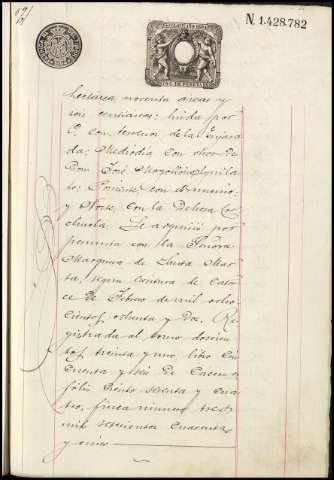 N. 1.428.782
hectárea, noventa áreas y
seis centiáreas: linda por
O. con terrenos de la Enjarada
da; Mediodía con otros de
Don José Mogollón
Poniente, con
y Norte, con la Dehesa
Se adquirió por
permuta con la Señora
Marquesa de Santa Mar-
ta, según escritura de cator
ce de Febrero de mil ocho
cientos ochenta y dos. Re
gistrada al tomo doscien
tos treinta y uno, libro cin
cuenta y seis de Caceres
folio ciento setenta y cua
tro, finca número tres
mil seiscientos cuarenta
y cinco